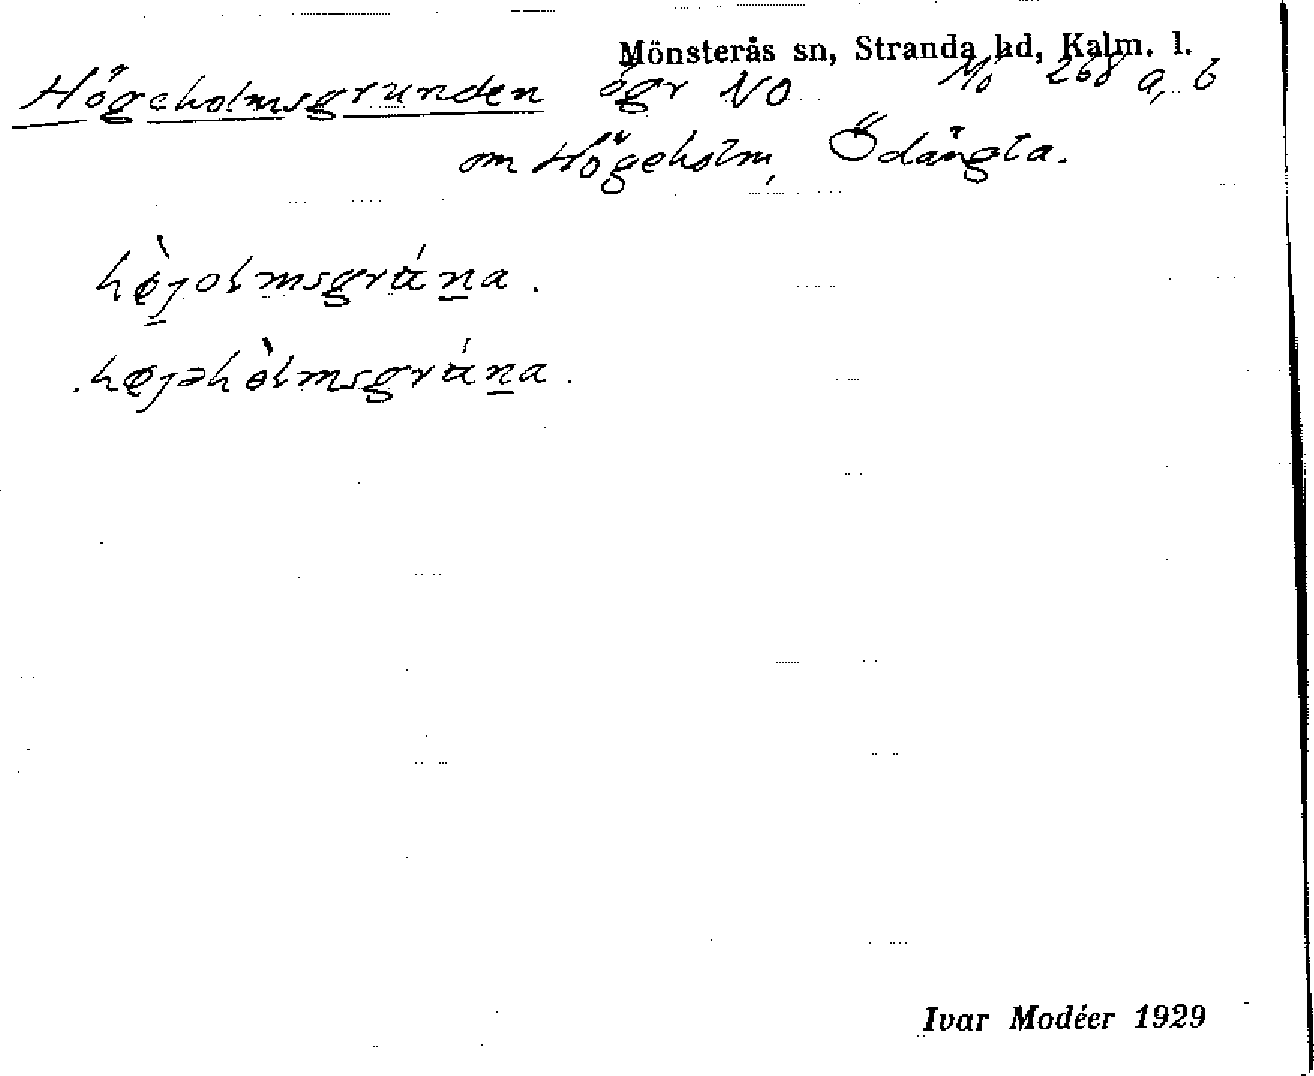 Mönsterås sn, Stranda hd, Kalm. l.
Högeholmsgrunden ögr NO Mö 268 a, b
om Högeholm, Ödängla.
hø̀jolmsgrána.
højəhòlmsgrána.
Ivar Modéer 1929